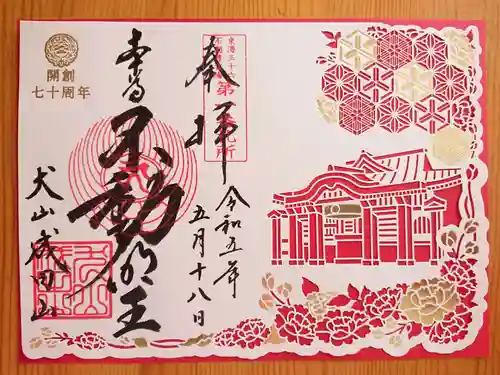 奉拝
令和五年
五月十八日
本尊
不動明王
犬山成田山
開創
七十周年
東海三十
不動
第
札所